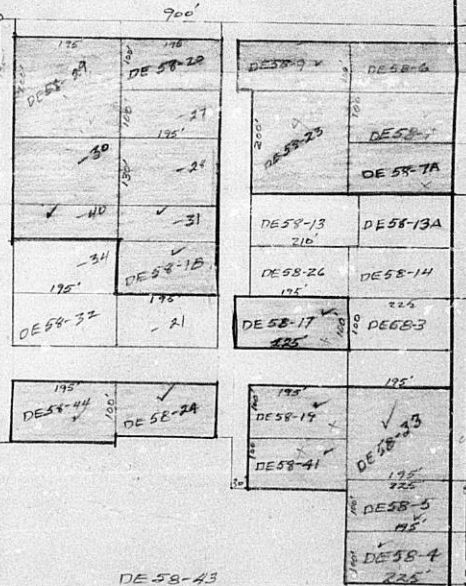 900'
195' 195'
DE58-29 100' DE 58-20
200'
100 -27
195'
-30 130' -28
✓ -40 ✓ -31
-34 ✓ DE58-1B
195' 195'
DE58-32 -21
195' ✓
DE58-44 100' DE 58-2A
DE58-9 ✓ 100' DE58-6
200' DE58-23 100
DE 58-7A
DE58-13 DE58-13A
210'
DE58-26 DE58-14
195' 225
DE58-17 ✓ 100' 100 DE58-3
225'
195' 195'
100' DE58-19 ✓ ✓ DE58-33
100 DE58-41 ✓
30'
195'
225
100' DE58-5
195'
100' DE58-4
225'
DE58-43